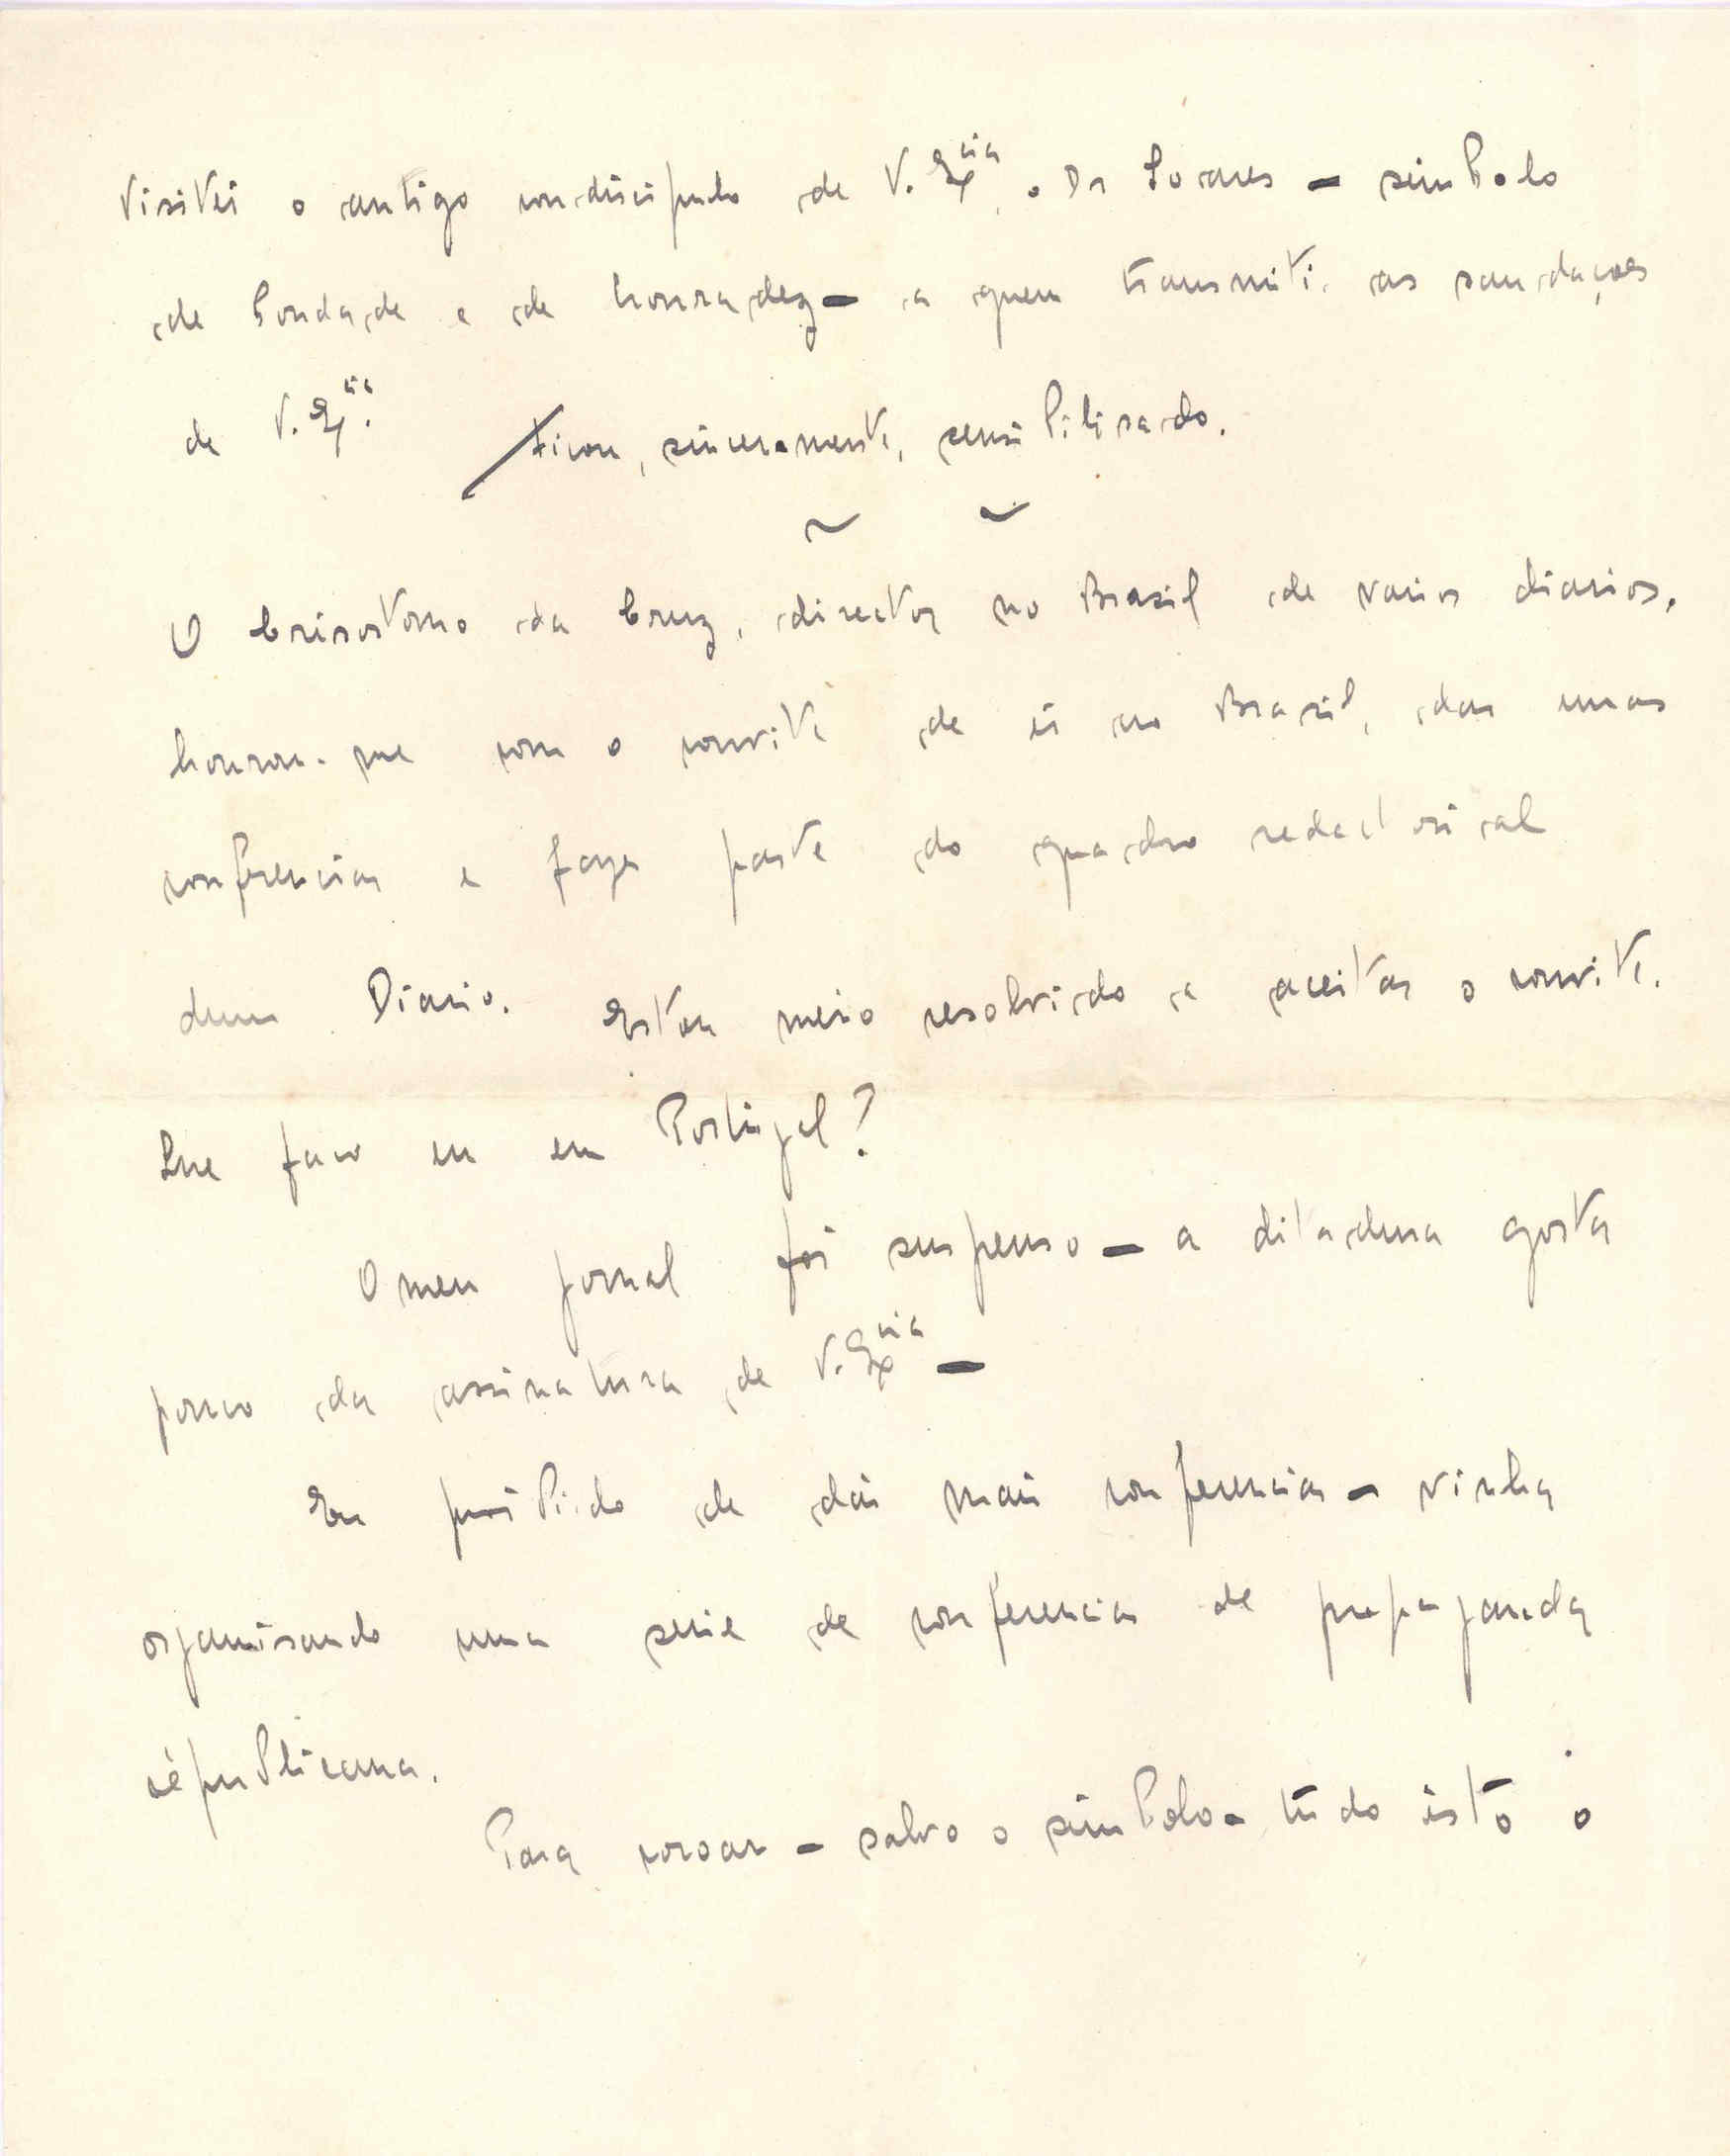 Visitei o antigo condiscipulo de V. Excia, o Dr Soares – simbolo
de bondade e de honradez – a quem transmiti as saudações
de V. Excia. Ficou, sinceramente, sensibilisado.
O Crisostomo da Cruz, director no Brasil de varios diarios,
honrou-me com o convite de ir ao Brasil, dar umas
conferencias e fazer parte do quadro redactorial
dum Diario. Estou meio resolvido a aceitar o convite.
Que faco eu em Portugal?
O meu jornal foi suspenso – a ditadura gosta
pouco da assinatura de V. Excia –
Eu proibido de dar mais conferencias – vinha
organisando uma serie de conferencias de propaganda
républicana.
Para coroar – salvo o simbolo – tudo isto o